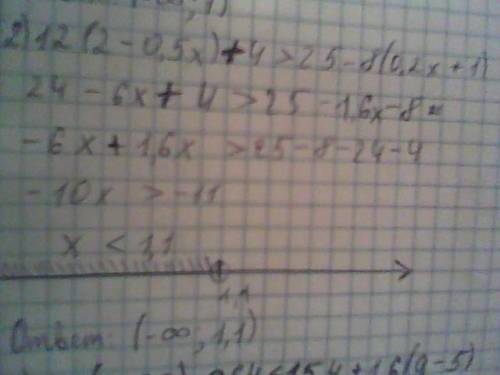 2) 12(2-0,5x)+4>25-8(0,2x+1)
24-6x+4>25-1,6x-8
-6x+1,6x>25-8-24-4
-10x>-11
x<1,1
1,1
Ответ: (-∞; 1,1)